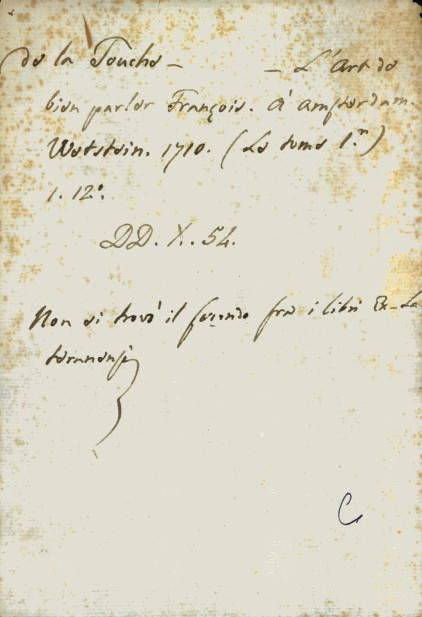 de la Touche - - L'art de
bien parler François. à Amsterdam.
Wetstein. 1710. (Le tome 1.er)
1. 12°.
DD. X. 54.
Non si trovò il secondo fra i libri Ex-La
teranensi
C